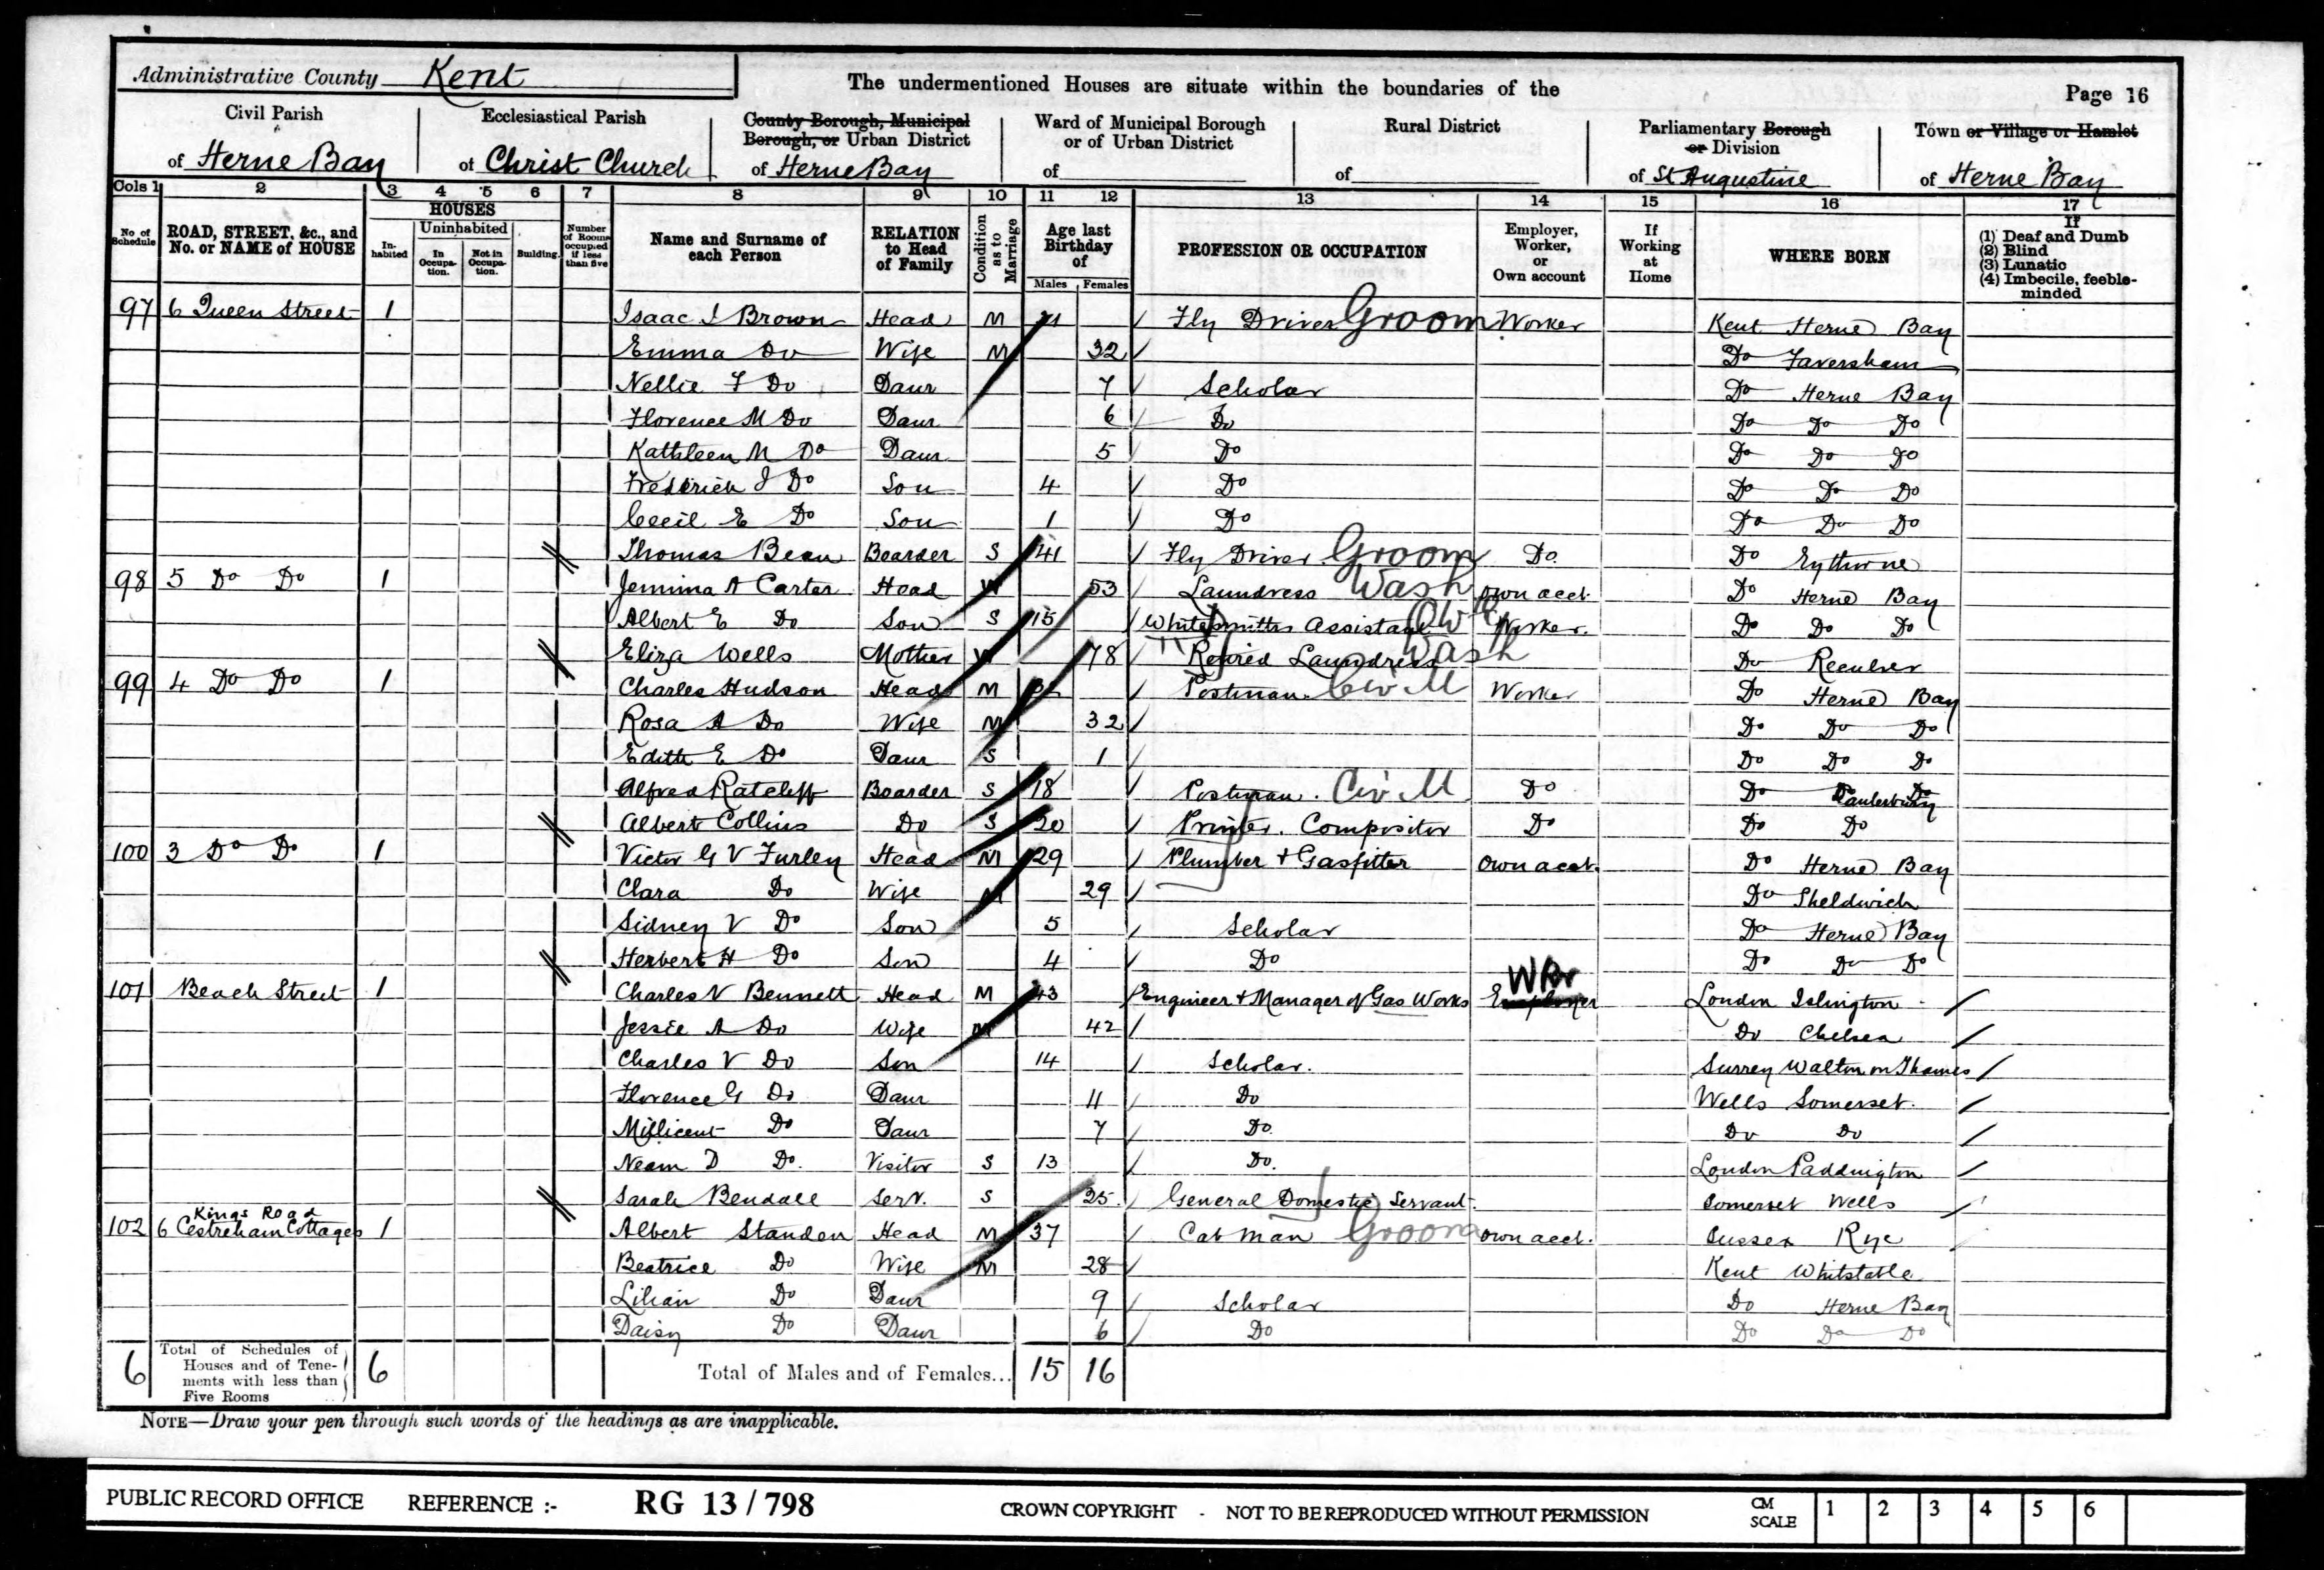 Administrative County Kent
The undermentioned Houses are situate within the boundaries of the
Page 16
Civil Parish of Herne Bay
Ecclesiastical Parish of Christ Church
County Borough, Municipal Borough, or Urban District of Herne Bay
Ward of Municipal Borough or of Urban District of
Rural District of
Parliamentary Borough or Division of St Augustine
Town or Village or Hamlet of Herne Bay
Cols 1 2 3 4 5 6 7 8 9 10 11 12 13 14 15 16 17
No. of Schedule
ROAD, STREET, &c., and No. or NAME of HOUSE
HOUSES
Inhabited
Uninhabited
In Occupation.
Not in Occupation.
Building.
Number of Rooms occupied if less than five
Name and Surname of each Person
RELATION to Head of Family
Condition as to Marriage
Age last Birthday of
Males Females
PROFESSION OR OCCUPATION
Employer, Worker, or Own account
If Working at Home
WHERE BORN
If
(1) Deaf and Dumb
(2) Blind
(3) Lunatic
(4) Imbecile, feeble-minded
97 6 Queen Street 1 Isaac Brown Head M Fly Driver Groom Worker Kent Herne Bay
Emma Do Wife M 32 Do Faversham
Nellie F Do Daur 7 Scholar Do Herne Bay
Florence M Do Daur 6 Do Do Do Do
Kathleen M Do Daur 5 Do Do Do Do
Fredrick J Do Son 4 Do Do Do Do
Cecil E Do Son 1 Do Do Do Do
Thomas Bean Boarder S 41 Fly Driver Groom Do Do Eythorne
98 5 Do Do 1 Jemima A Carter Head W 53 Laundress Wash Own acct. Do Herne Bay
Albert E Do Son S 15 Whitesmiths Assistant Worker. Do Do Do
Eliza Wells Mother W 78 Retired Laundress Wash Do Reculver
99 4 Do Do 1 Charles Hudson Head M Postman. Civ M Worker Do Herne Bay
Rosa A Do Wife M 32 Do Do Do
Edith E Do Daur S 1 Do Do Do
Alfred Ratcliff Boarder S 18 Postman. Civ M Do Do Canterbury
Albert Collins Do S 20 Printer. Compositor Do Do Do
100 3 Do Do 1 Victor G V Furley Head M 29 Plumber + Gasfitter Own acct. Do Herne Bay
Clara Do Wife M 29 Do Sheldwich
Sidney V Do Son 5 Scholar Do Herne Bay
Herbert H Do Son 4 Do Do Do Do
101 Beach Street 1 Charles V Bennett Head M 43 Engineer + Manager of Gas Works Employer Wkr London Islington
Jessie A Do Wife M 42 Do Chelsea
Charles V Do Son 14 Scholar. Surrey Walton on Thames
Florence G Do Daur 11 Do Wells Somerset.
Millicent Do Daur 7 Do. Do Do
Do. Visitor S 13 Do. London Paddington
Sarah Bendall Serv. S 25 General Domestic Servant. Somerset Wells
102 Kings Road 6 Cestreham Cottages 1 Albert Standen Head M 37 Cab Man Groom Own acct. Sussex Rye
Beatrice Do Wife M 28 Kent Whitstable
Lilian Do Daur 9 Scholar Do Herne Bay
Daisy Do Daur 6 Do Do Do Do
6 Total of Schedules of Houses and of Tenements with less than Five Rooms 6 Total of Males and of Females... 15 16
NOTE—Draw your pen through such words of the headings as are inapplicable.
PUBLIC RECORD OFFICE REFERENCE :- RG 13 / 798 CROWN COPYRIGHT - NOT TO BE REPRODUCED WITHOUT PERMISSION CM SCALE 1 2 3 4 5 6